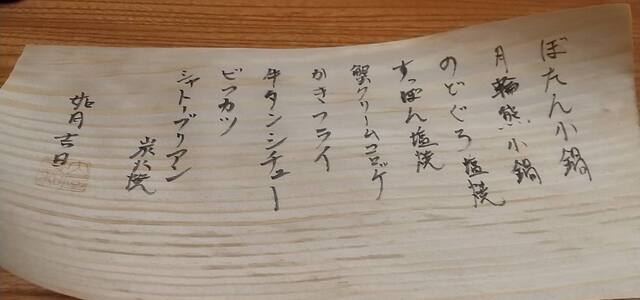 ぼたん小鍋
月輪熊小鍋
のどぐろ塩焼
すっぽん塩焼
蟹クリームコロッケ
かきフライ
牛タンシチュー
ビフカツ
シャトーブリアン
炭火焼
如月吉日